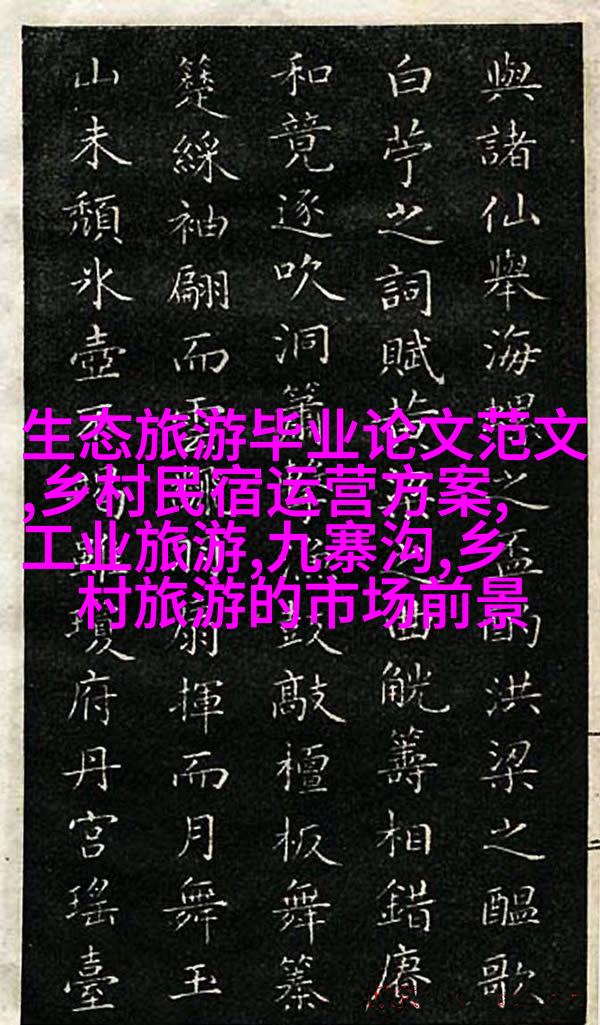 與諸仙舉海螺之盃酌洪梁之醖歌
白苧之詞賦黃之曲觥籌相錯賡
和競逐吹洞簫鼓敲檀板舞
綵袖翩而雲扇揮而月舞玉
山未頹氷壺雖瓊府丹宮瑤臺
生态旅游毕业论文范文
,乡村民宿运营方案,
工业旅游,九寨沟,乡
村旅游的市场前景